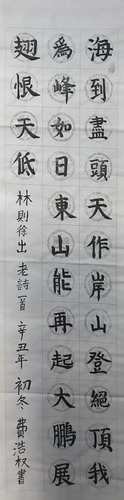 海到盡頭天作岸山登絕頂我
為峰如日東山能再起大鵬展
翅恨天低
林則徐出老詩一首辛丑年初冬費浩权書